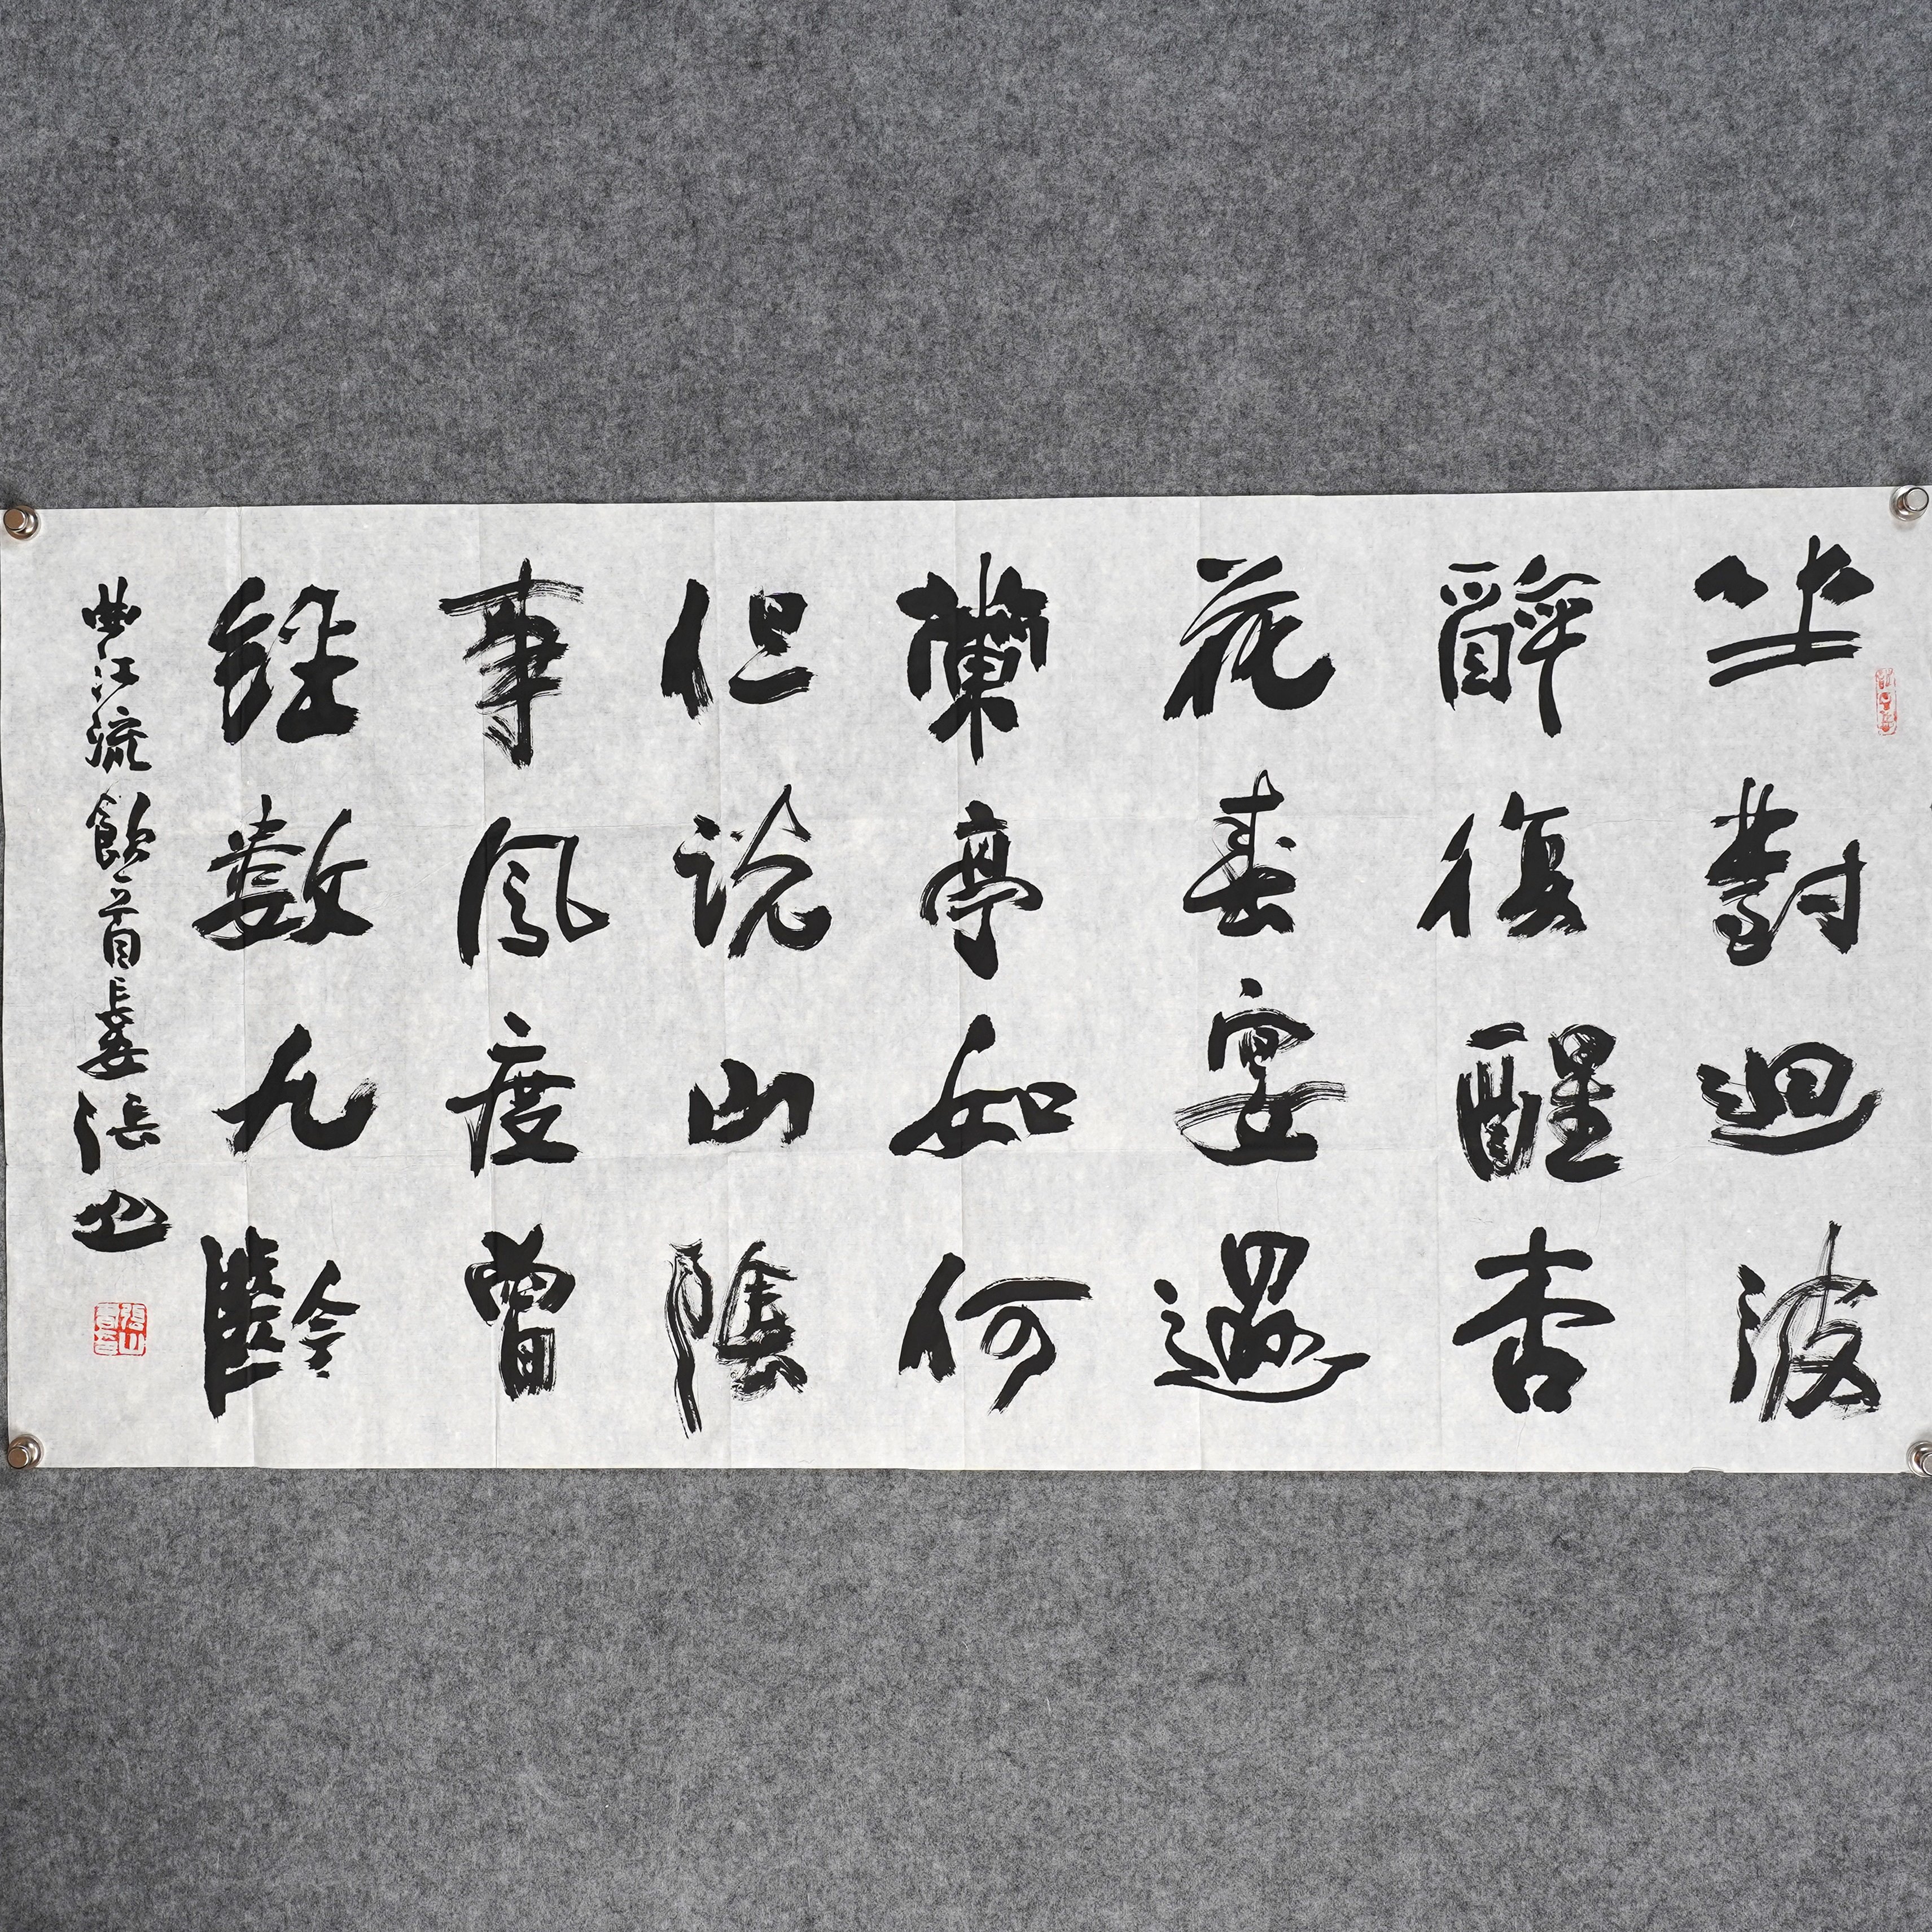 坐對迴波
醉復醒杏
花春宴過
蘭亭如何
但說山陰
事風度曾
經數九齡
曲江流飲一首長安張